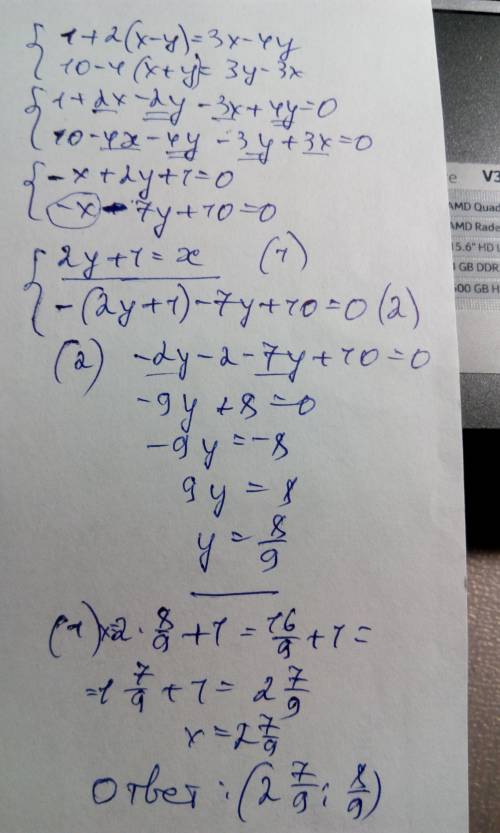 { 1+2(x-y)=3x-4y
10-4(x+y)=3y-3x
{ 1+2x-2y-3x+4y=0
10-4x-4y-3y+3x=0
{ -x+2y+1=0
-x-7y+10=0
{ 2y+1=x (1)
-(2y+1)-7y+10=0 (2)
(2) -2y-2-7y+10=0
-9y+8=0
-9y=-8
9y=8
y=8/9
(1) x=2·8/9+1=16/9+1=
=1 7/9+1=2 7/9
x=2 7/9
Ответ: (2 7/9; 8/9)
e V3
AMD Quad
AMD Rade
15.6" HD
GB DDR
500 GB H